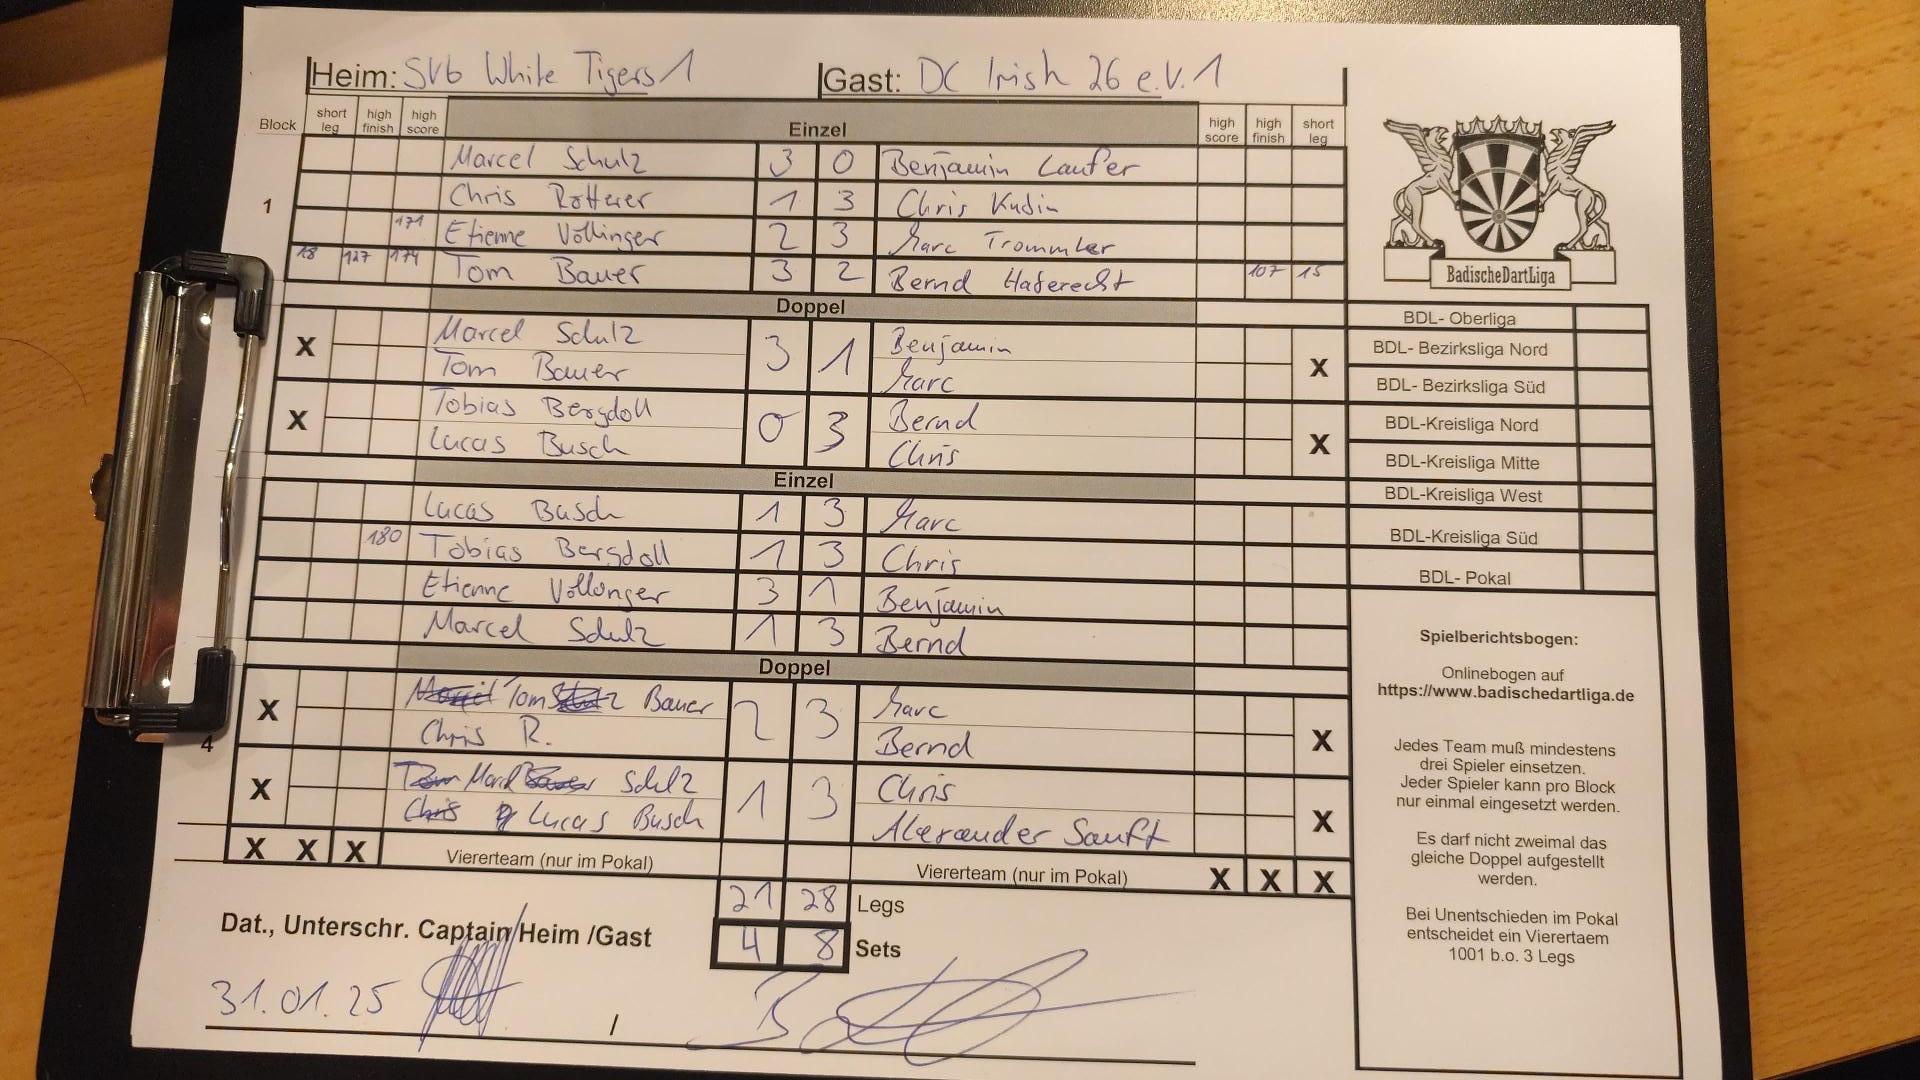 Heim: SVb White Tigers 1 Gast: DC Irish 26 e.V. 1
Block short leg high finish high score Einzel high score high finish short leg
Marcel Schulz 3 0 Benjamin Laufer
1 Chris Rotterer 1 3 Chris Kudin
171 Etienne Vollinger 2 3 Marc Trommler
18 127 174 Tom Bauer 3 2 Bernd Haferecht 107 15
BadischeDartLiga
Doppel
X Marcel Schulz 3 1 Benjamin X
Tom Bauer Marc
X Tobias Bergdoll 0 3 Bernd X
Lucas Busch Chris
Einzel
Lucas Busch 1 3 Marc
180 Tobias Bergdoll 1 3 Chris
Etienne Vollinger 3 1 Benjamin
Marcel Schulz 1 3 Bernd
Doppel
X Tom Bauer 2 3 Marc X
Chris R. Bernd
4
X Schulz 1 3 Chris X
Lucas Busch Alexander Sanft
X X X Viererteam (nur im Pokal) Viererteam (nur im Pokal) X X X
21 28 Legs
Dat., Unterschr. Captain Heim /Gast 4 8 Sets
31.01.25 /
BDL- Oberliga
BDL- Bezirksliga Nord
BDL- Bezirksliga Süd
BDL-Kreisliga Nord
BDL-Kreisliga Mitte
BDL-Kreisliga West
BDL-Kreisliga Süd
BDL- Pokal
Spielberichtsbogen:
Onlinebogen auf
https://www.badischedartliga.de
Jedes Team muß mindestens
drei Spieler einsetzen.
Jeder Spieler kann pro Block
nur einmal eingesetzt werden.
Es darf nicht zweimal das
gleiche Doppel aufgestellt
werden.
Bei Unentschieden im Pokal
entscheidet ein Vierertaem
1001 b.o. 3 Legs